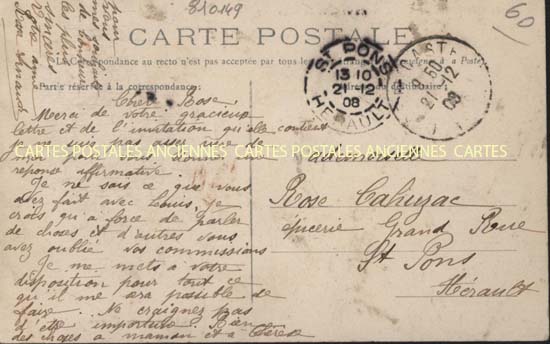 810149
60
CARTE POSTALE
La Correspondance au recto n'est pas acceptée
à la Poste
Partie réservée à la correspondance
destinataire
Chère Rose
Merci de votre gracieuse
lettre et de l'invitation qu'elle contient
je
réponse affirmative.
Je ne sais ce que vous
avez fait avec Louis, je
crois qu'à force de parler
de choses et d'autres vous
avez oublié vos commissions
Je me mets à votre
disposition pour tout ce
qu'il me sera possible de
faire. Ne craignez pas
d'être importune. Bien
des choses à maman et à Thérèse
pour
vous
mes
de
les plus
sincères
Votre amie
CARTES POSTALES ANCIENNES CARTES POSTALES ANCIENNES CARTES
ST PONS
13 10
21-12
08
HERAULT
CASTE
50
21-12
08
Mademoiselle
Rose Cahuzac
épicerie Grand Rue
St Pons
Hérault